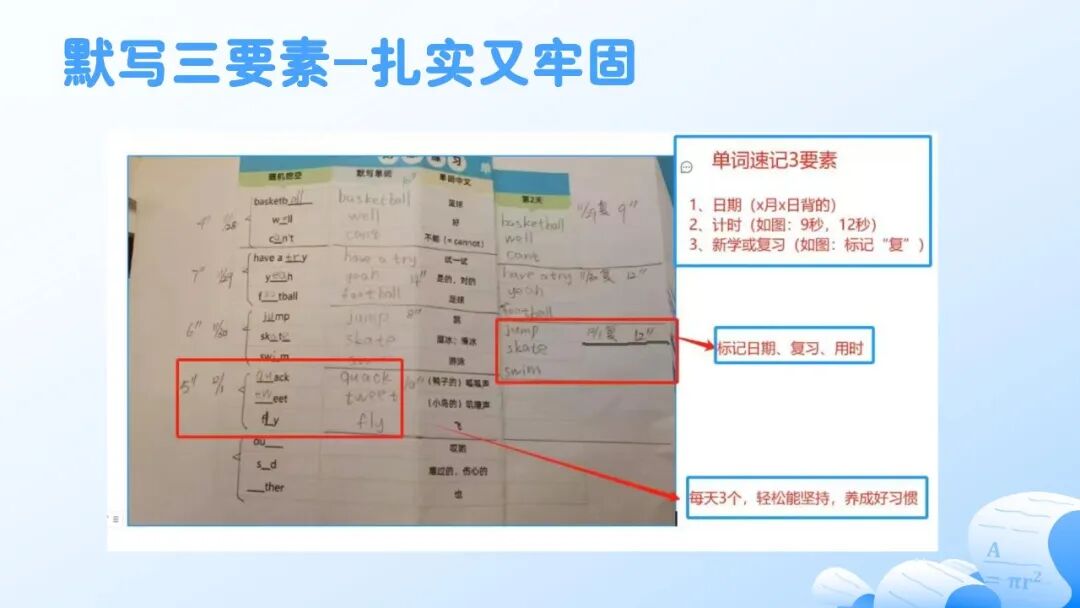 默写三要素-扎实又牢固
练习 单
随机挖空 默写单词 单词中文 第2天
basketball basketball 10" 篮球 11/29复 9"
4" 11/28 well well 好 basketball
can't cant 不能（= cannot） well
cant
have a try have a try 试一试 have a try 11/30复 12"
7" 11/29 yeah yeah 14" 是的，对的 yeah
football football 足球 football
jump jump 8" 跳 jump 12/1复 12"
6" 11/30 skate skate 溜冰；滑冰 skate
swim 游泳 swim
quack quack 10" （鸭子的）呱呱声
5" 12/1 tweet tweet （小鸟的）叽喳声
fly fly 飞
ou___ 哎哟
s_d 难过的，伤心的
__ther 也
单词速记3要素
1、日期（x月x日背的）
2、计时（如图：9秒，12秒）
3、新学或复习（如图：标记“复”）
标记日期、复习、用时
每天3个，轻松能坚持，养成好习惯
A
= πr²